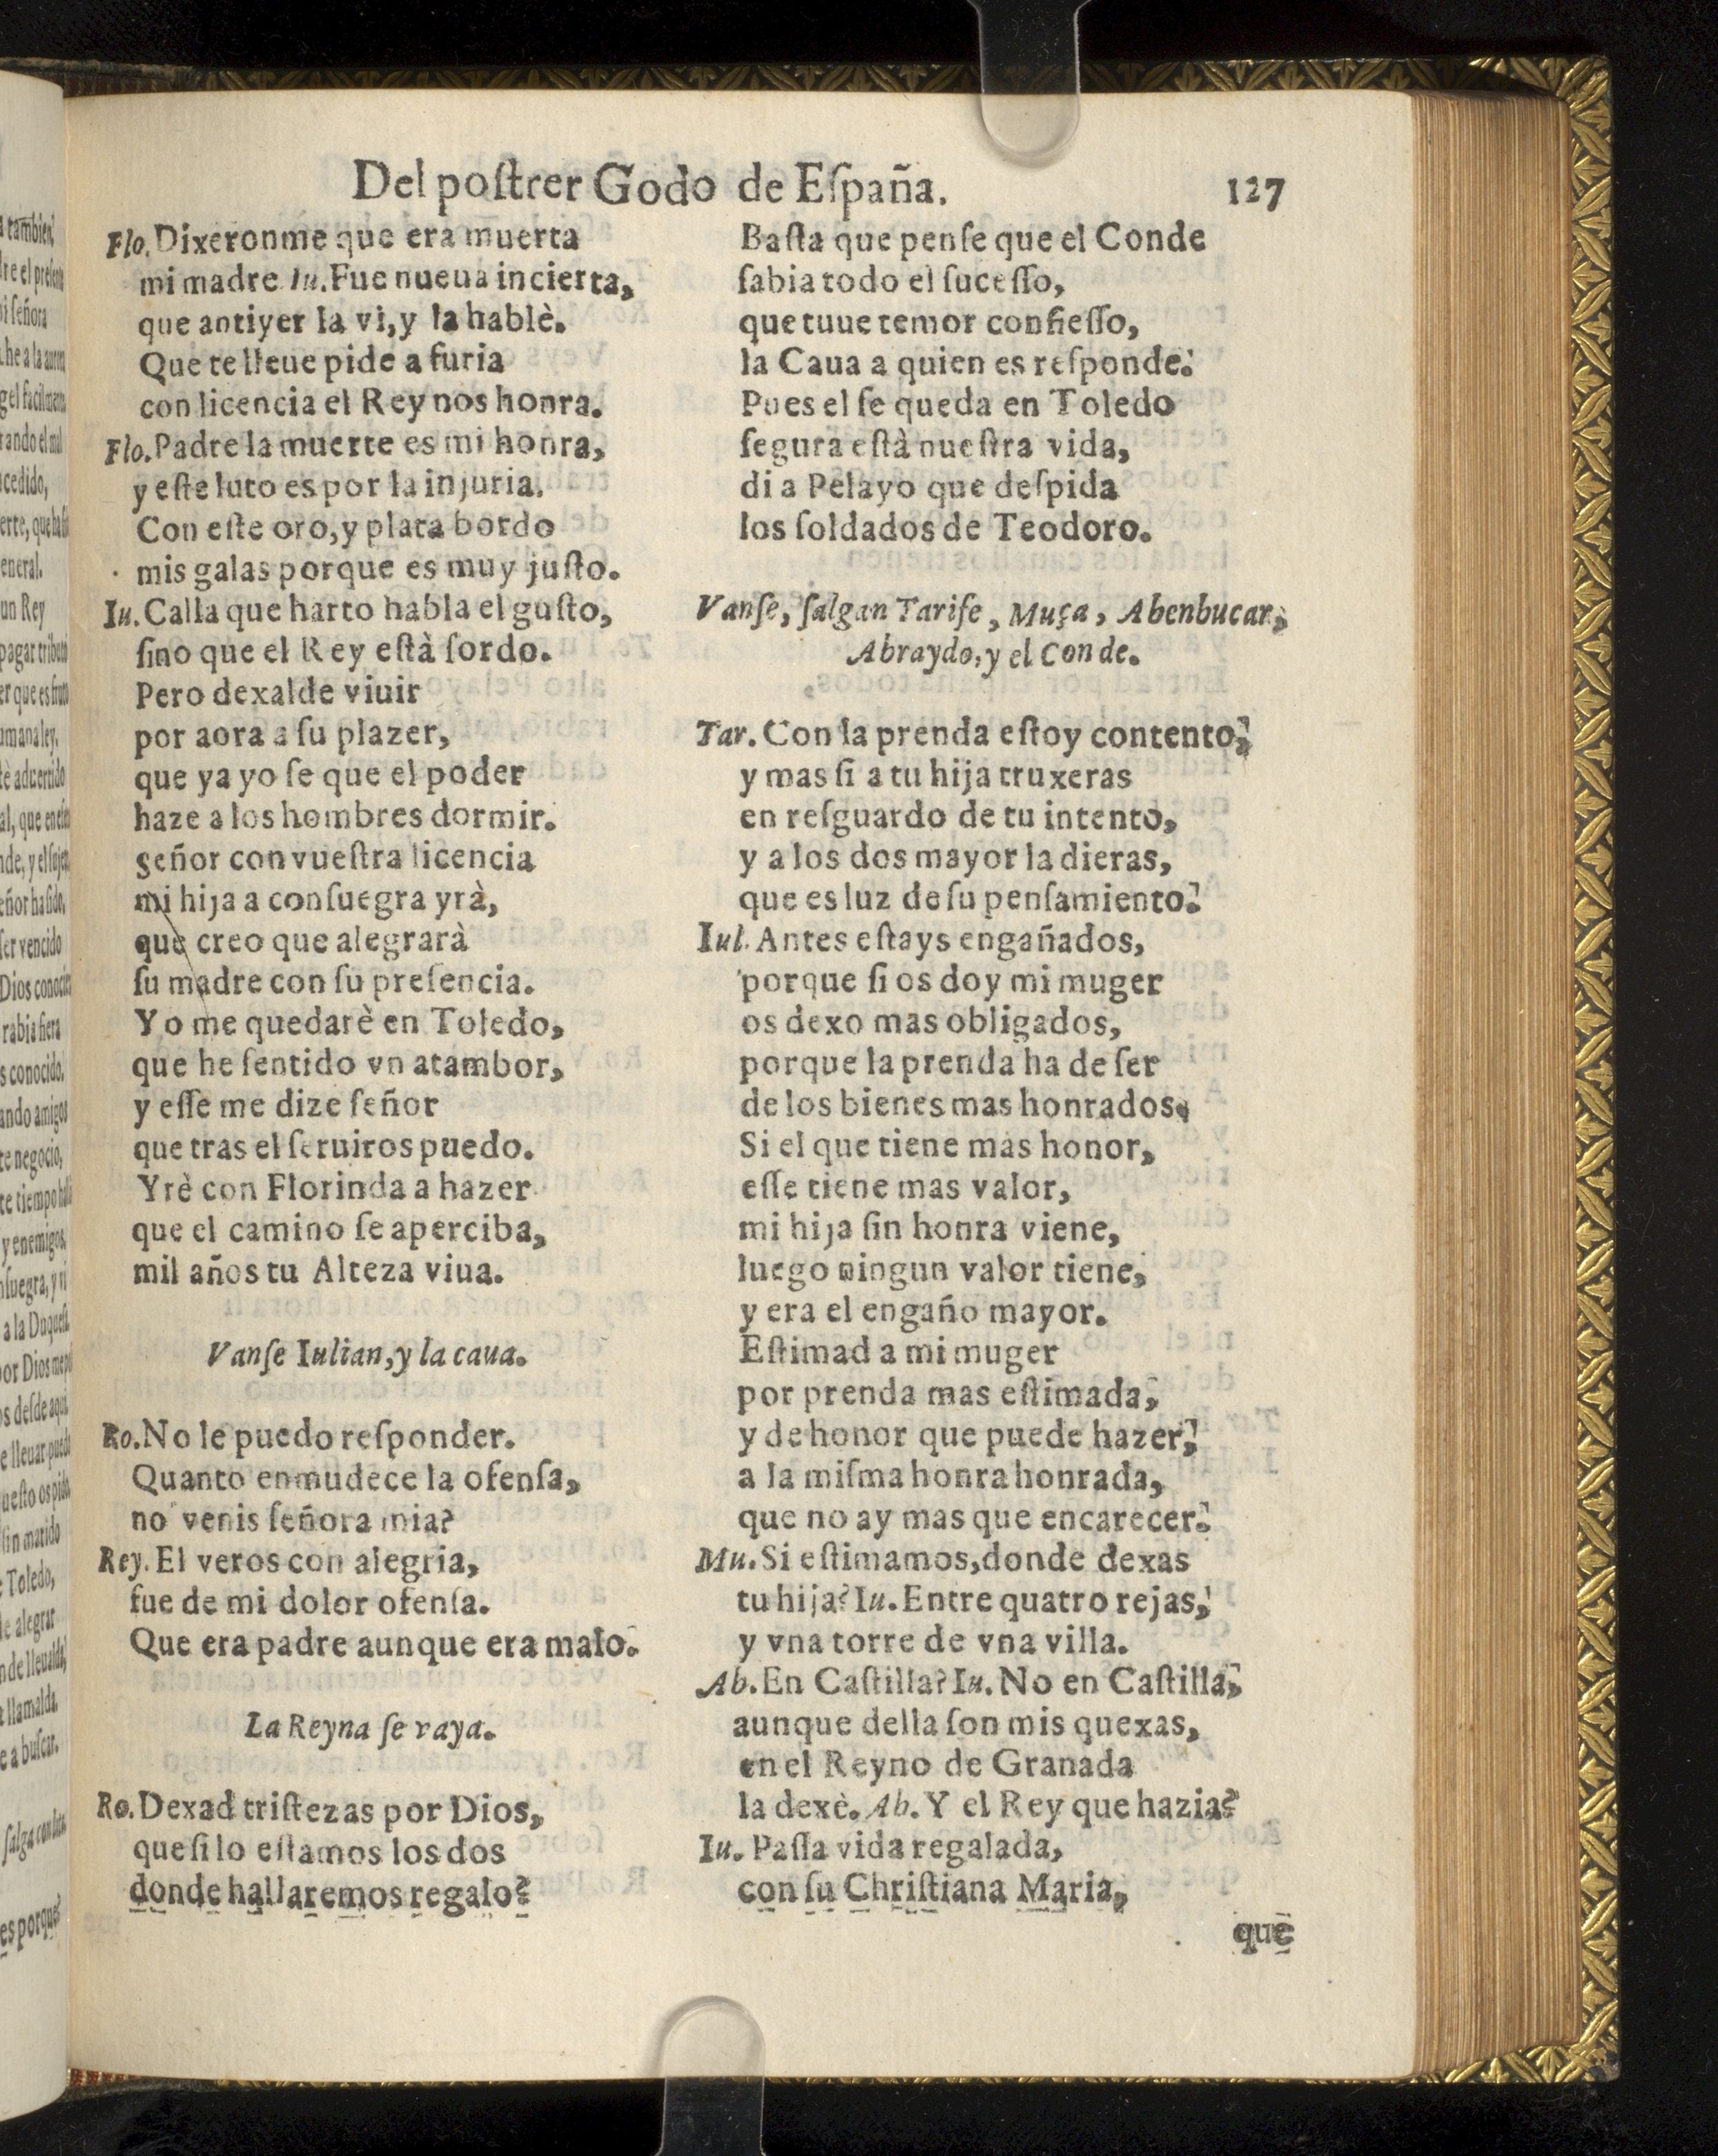 Del poſtrer Godo de Eſpaña. 127
Flo. Dixeronme que era muerta
mi madre. Iu. Fue nueua incierta,
que antiyer la vi, y la hablè.
Que te lleue pide a furia
con licencia el Rey nos honra.
Flo. Padre la muerte es mi honra,
y eſte luto es por la injuria.
Con eſte oro, y plata bordo
mis galas porque es muy juſto.
Iu. Calla que harto habla el guſto,
ſino que el Rey eſtà ſordo.
Pero dexalde viuir
por aora a ſu plazer,
que ya yo ſe que el poder
haze a los hombres dormir.
Señor con vueſtra licencia
mi hija a conſuegra yrà,
que creo que alegrarà
ſu madre con ſu preſencia.
Yo me quedarè en Toledo,
que he ſentido vn atambor,
y eſſe me dize ſeñor
que tras el ſeruiros puedo.
Yrè con Florinda a hazer
que el camino ſe aperciba,
mil años tu Alteza viua.
Vanſe Iulian, y la caua.
Ro. No le puedo reſponder.
Quanto enmudece la ofenſa,
no venis ſeñora mia?
Rey. El veros con alegria,
fue de mi dolor ofenſa.
Que era padre aunque era malo.
La Reyna ſe vaya.
Ro. Dexad triſtezas por Dios,
que ſi lo eſtamos los dos
donde hallaremos regalo?
Baſta que penſe que el Conde
ſabia todo el ſuceſſo,
que tuue temor confieſſo,
la Caua a quien es reſponde.
Pues el ſe queda en Toledo
ſegura eſtà nueſtra vida,
di a Pelayo que deſpida
los ſoldados de Teodoro.
Vanſe, ſalgan Tarife, Muça, Abenbucar,
Abraydo, y el Conde.
Tar. Con la prenda eſtoy contento,
y mas ſi a tu hija truxeras
en reſguardo de tu intento,
y a los dos mayor la dieras,
que es luz de ſu penſamiento.
Iul. Antes eſtays engañados,
porque ſi os doy mi muger
os dexo mas obligados,
porque la prenda ha de ſer
de los bienes mas honrados.
Si el que tiene mas honor,
eſſe tiene mas valor,
mi hija ſin honra viene,
luego ningun valor tiene,
y era el engaño mayor.
Eſtimad a mi muger
por prenda mas eſtimada,
y de honor que puede hazer,
a la miſma honra honrada,
que no ay mas que encarecer.
Mu. Si eſtimamos, donde dexas
tu hija? Iu. Entre quatro rejas,
y vna torre de vna villa.
Ab. En Caſtilla? Iu. No en Caſtilla,
aunque della ſon mis quexas,
en el Reyno de Granada
la dexè. Ab. Y el Rey que hazia?
Iu. Paſſa vida regalada,
con ſu Chriſtiana Maria,
que